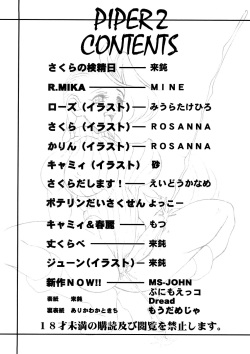 PIPER2
CONTENTS
さくらの検精日 ── 来鈍
R.MIKA ── MINE
ローズ (イラスト) ─ みうらたけひろ
さくら (イラスト) ─ ROSANNA
かりん (イラスト) ─ ROSANNA
キャミィ (イラスト) 砂
さくらだします！ ─ えいどうかなめ
ポテリンだいさくせん よっこー
キャミィ＆春麗 ── もつ
丈くらべ ── 来鈍
ジューン(イラスト) ─ 来鈍
新作NOW!! ── MS-JOHN
ぷにもえっコ
表紙 来鈍 Dread
裏表紙 ありかわかときち もうだめじゃ
18才未満の購読及び閲覧を禁止します。